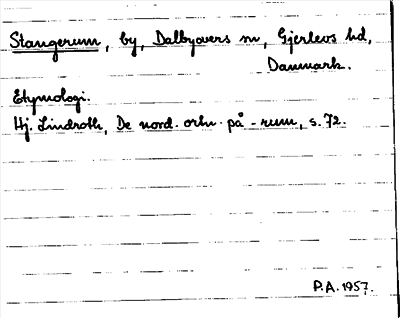 Stangerum, by, Dalbyovers sn, Gjerlevs hd,
Danmark.
Etymologi.
Hj. Lindroth, De nord. ortn. på -rum, s. 72.
P.A. 1957.